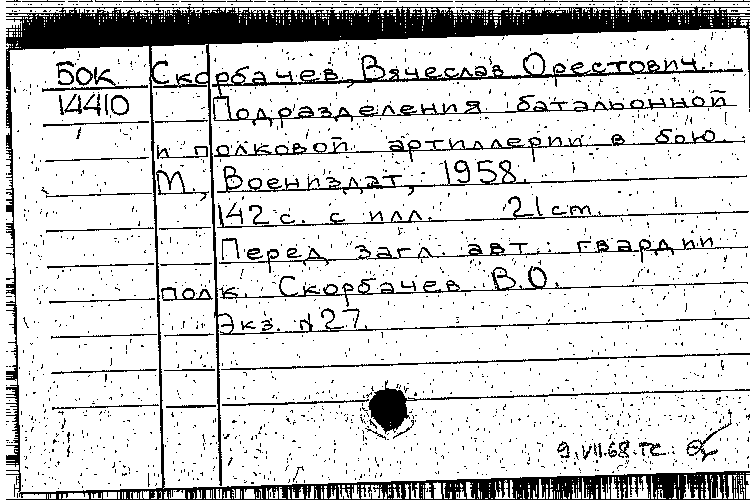 БОК Скорбачев, Вячеслав Орестович.
14410 Подразделения батальонной
и полковой артиллерии в бою.
М., Воениздат, 1958.
142 с. с илл. 21 cm.
Перед загл. авт.: гвардии
полк. Скорбачев В.О.
Экз. №27.
9.VII.68.